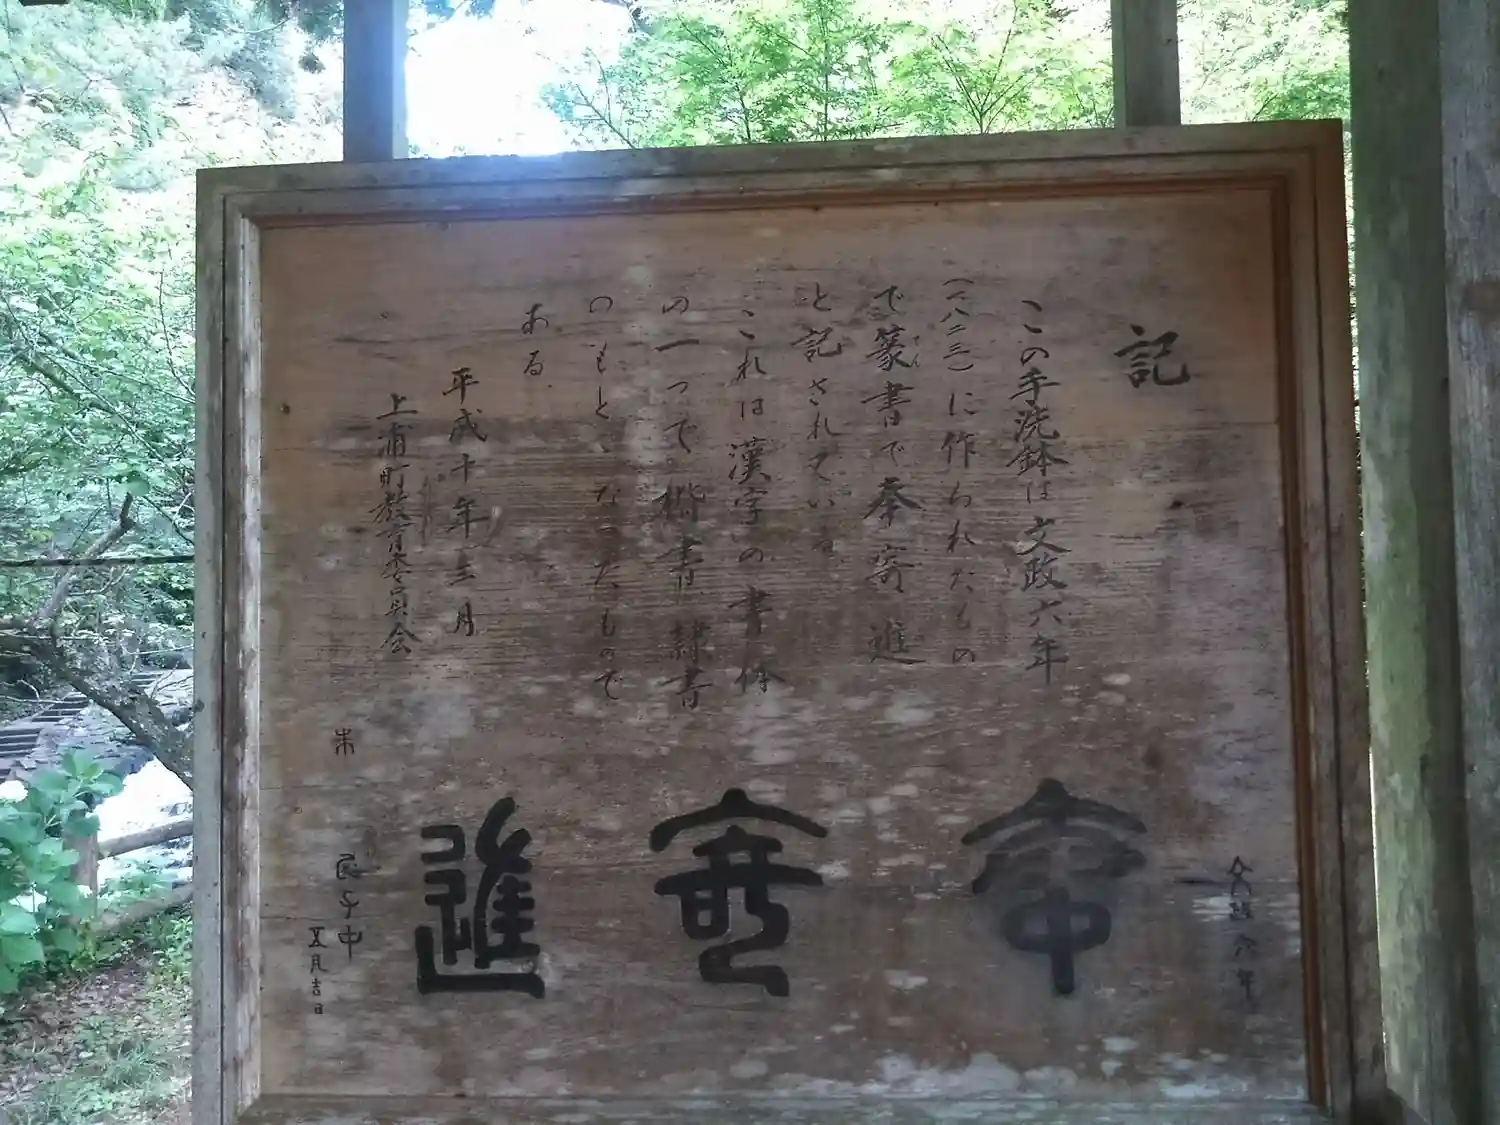 記
この手洗鉢は文政六年
(一八二三)に作られたもの
で篆書で奉寄進
てん
と記されている
これは漢字の書体
の一つで、楷書、隷書
のもとゝなったもので
ある.
平成十年三月
上浦町教育委員会
文政六年
奉
寄
進
氏子中
五月吉日